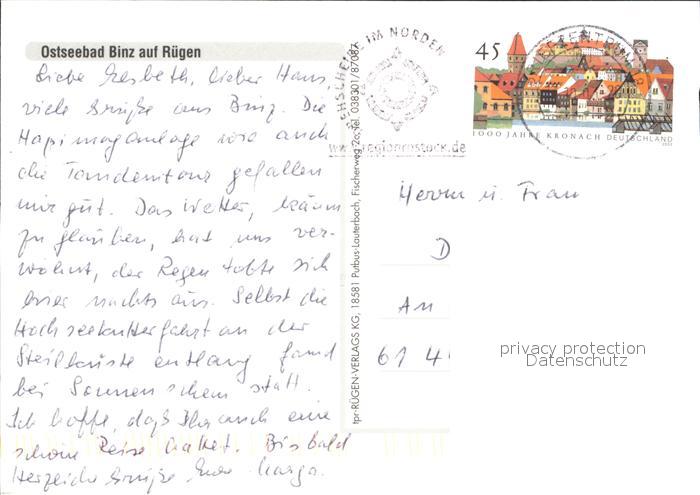 Ostseebad Binz auf Rügen
Liebe Lisbeth, lieber Hans,
viele Grüße aus Binz. Die
Hapimaganlage wie auch
die Tandemtour gefallen
mir gut. Das Wetter, kaum
zu glauben, hat uns ver-
wöhnt, der Regen tobte sich
hier nachts aus. Selbst die
Hochseekutterfahrt an der
Steilküste entlang fand
bei Sonnenschein statt.
Ich hoffe, daß Ihr auch eine
schöne Reise hattet. Bis bald
Herzliche Grüße Eure Marga.
tpr-RÜGEN-VERLAGS KG, 18581 Putbus-Lauterbach, Fischerweg 2c, Tel. 038301/87087
IM NORDEN
www.regionrostock.de
45
1000 JAHRE KRONACH DEUTSCHLAND
2003
Herrn u. Frau
D
An
61 4
privacy protection
Datenschutz